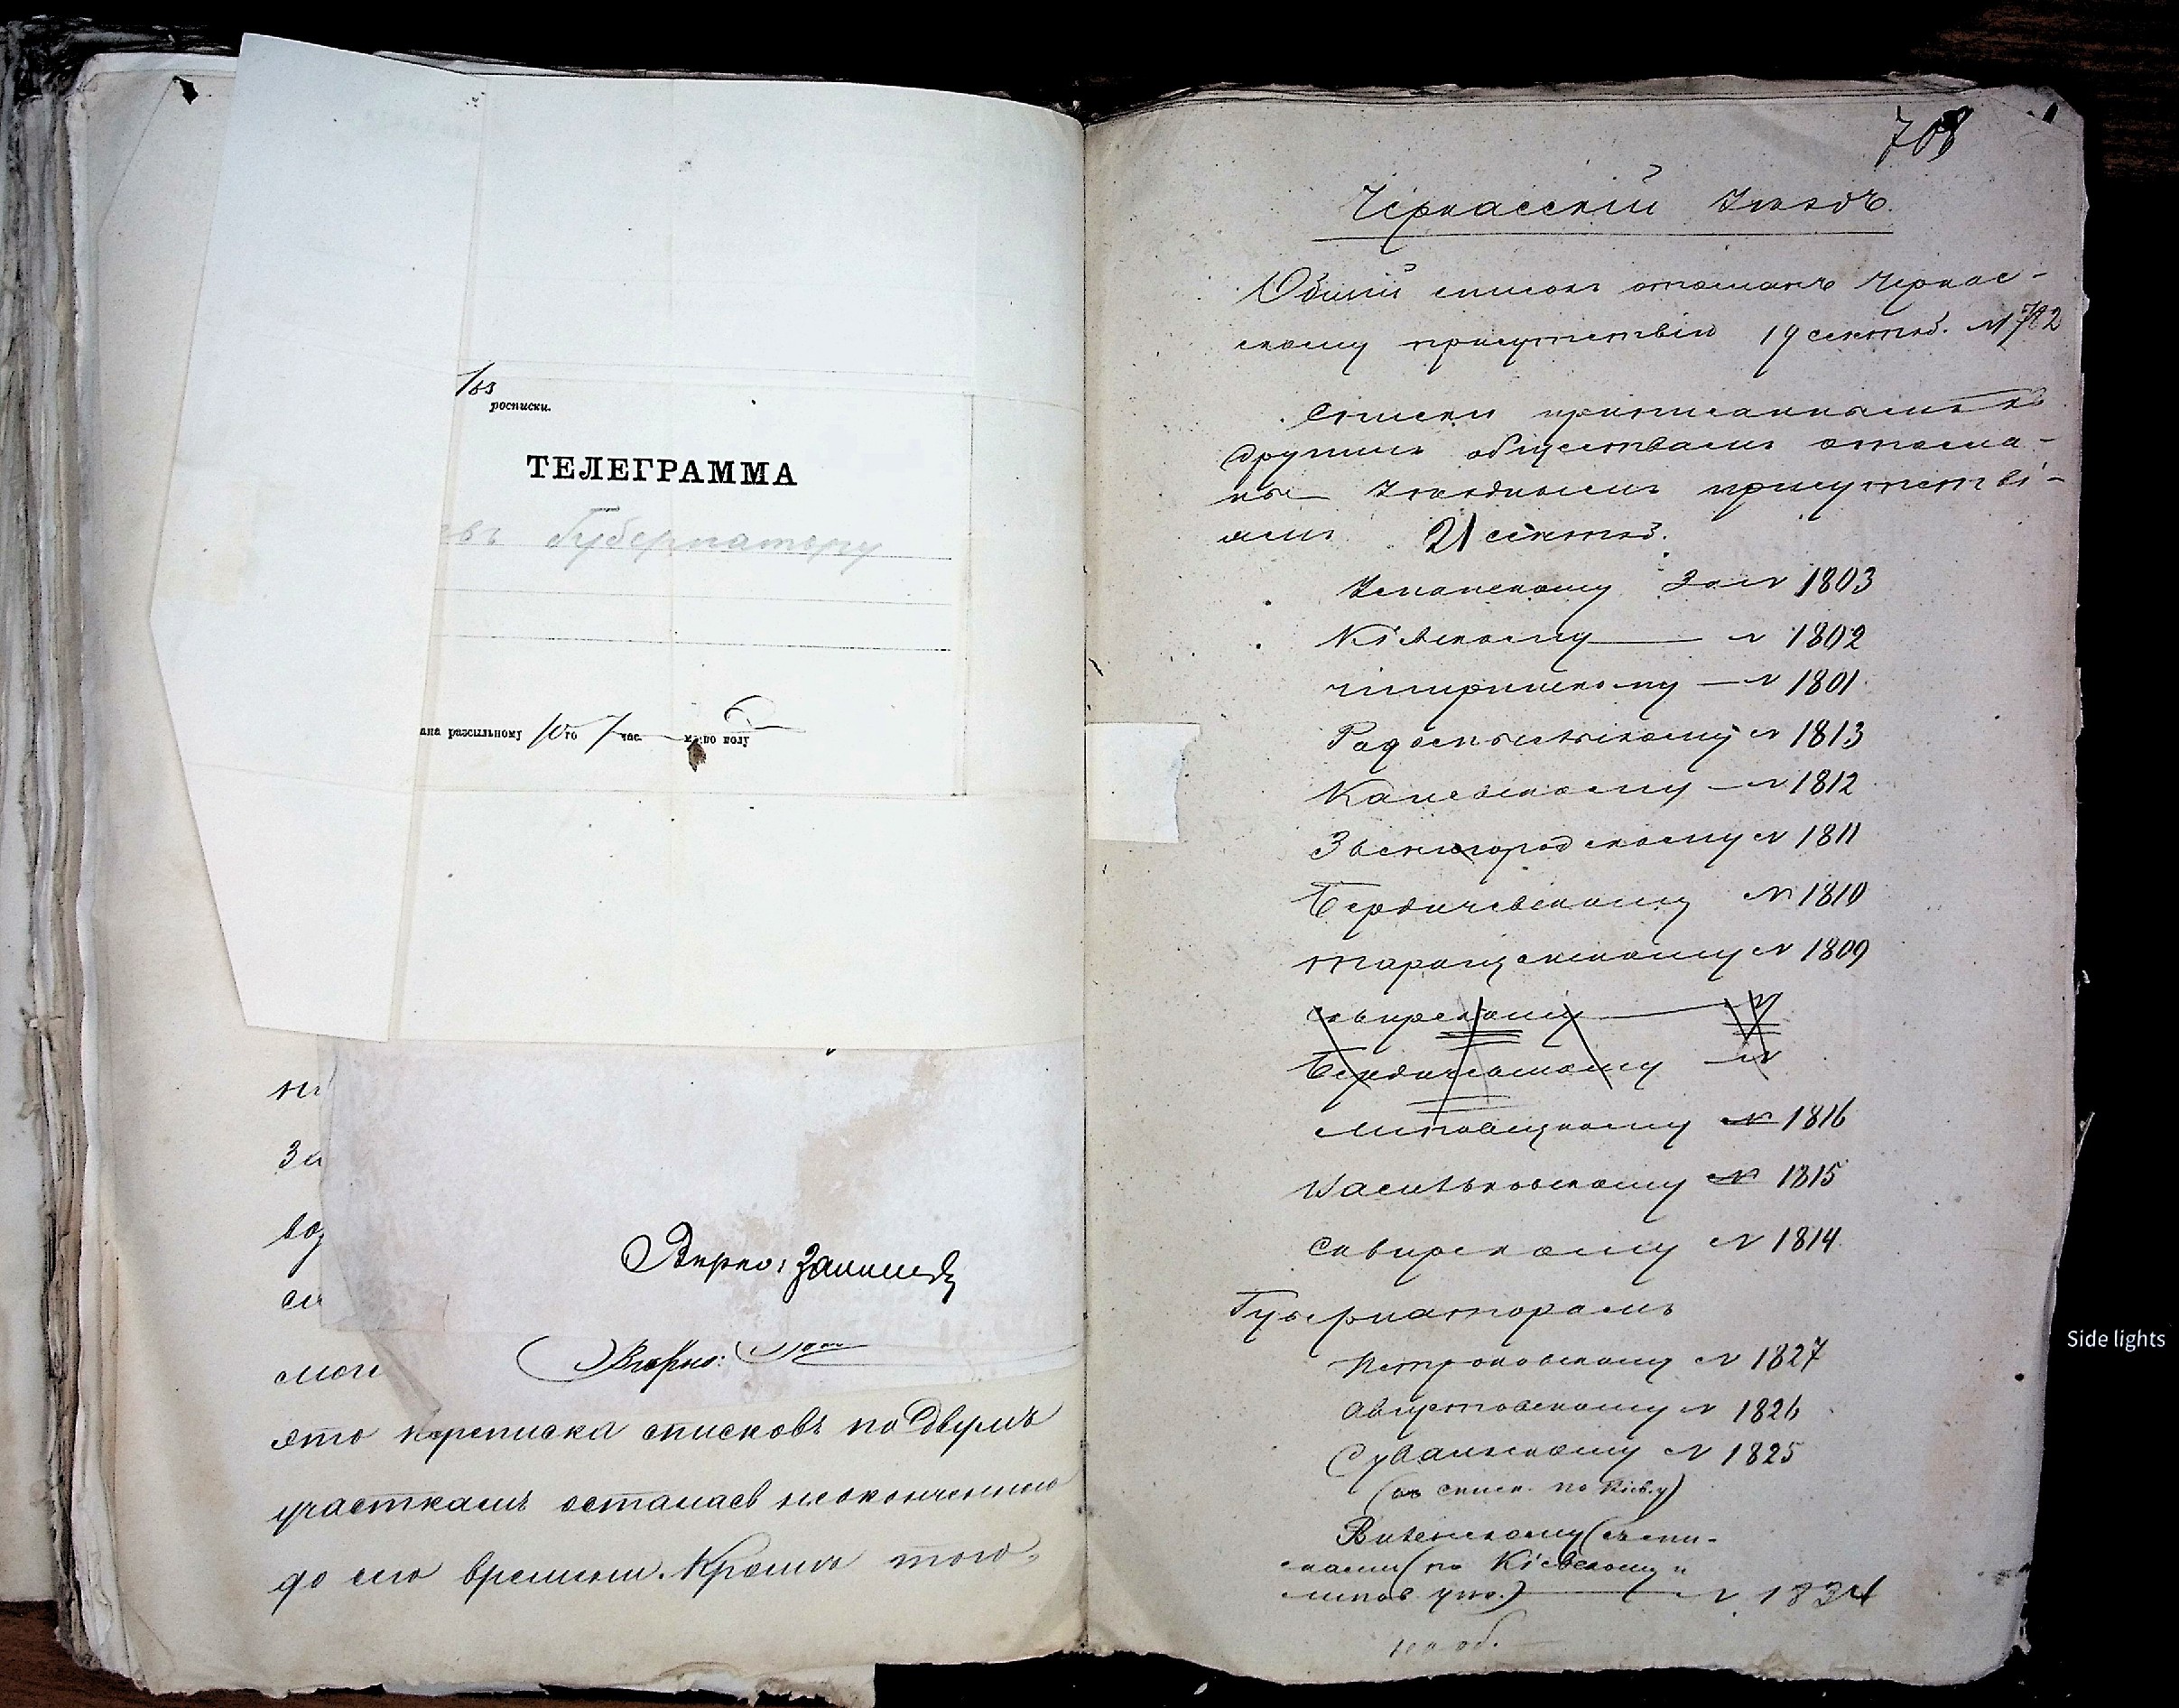 1/63
росписки.
ТЕЛЕГРАММА
евъ Губернатору
ана разсыльному 10го 7 час. м. по полу
За
воз
Вѣрно:
Вѣрно:
моги
это переписка списковъ по двумъ
участкамъ осталась неоконченною
до сего времени. Кромѣ того,
708
Черкасскій Уѣздъ.
Общій списокъ отосланъ Черкас-
скому присутствію 19 сентяб. № 782
Списки приписаннымъ къ
другимъ обществамъ отосла-
ны Уѣзднымъ присутстві-
ямъ 21 сентяб.
Уманскому За № 1803
Кіевскому — № 1802
Чигиринскому — № 1801
Радомысльскому № 1813
Каневскому — № 1812
Звенигородскому № 1811
Бердичевскому № 1810
Таращанскому № 1809
Сквирскому — №
Бердичевскому — №
Липовецкому № 1816
Васильковскому № 1815
Сквирскому № 1814
Губернаторамъ
Петроковскому № 1827
Августовскому № 1826
Сувалкскому № 1825
(въ списк. по Кіеву)
Виленскому (съ спи-
сками (по Кіевскому и
липов. уѣз.) — № 1834
Side lights